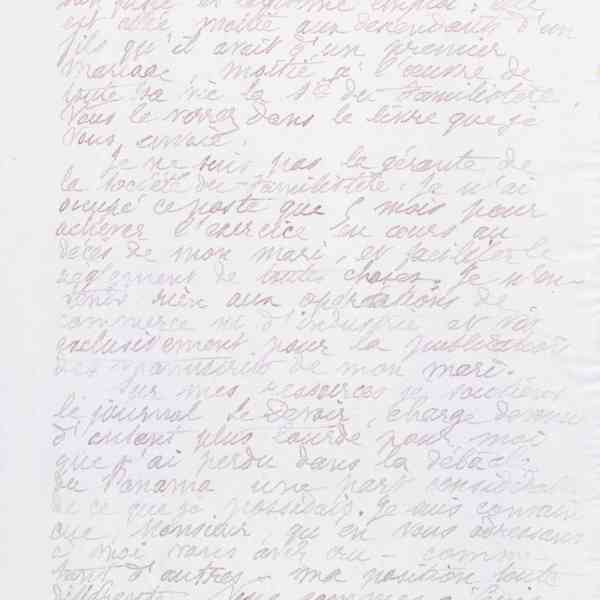 est allé moitié aux descendants d'un
fils qu'il avait d'un premier
mariage, moitié à l'œuvre de
toute sa vie la Sté du Familistère.
Vous le verrez dans le livre que je
vous envoie.
Je ne suis pas la gérante de
la société du Familistère. Je n'ai
occupé ce poste que mois pour
achever l'exercice en cours au
décès de mon mari, et faciliter le
règlement de toutes choses. Je n'en-
tends rien aux opérations de
commerce ni d'industrie et vis
exclusivement pour la publication
des manuscrits de mon mari.
Sur mes ressources je soutiens
le journal le Devoir, charge devenue
d'autant plus lourde pour moi
que j'ai perdu dans la débâcle
du Panama une part considérable
de ce que je possédais. Je suis convain
cue, Monsieur, qu'en vous adressant
à moi vous avez cru - comme
tant d'autres - ma position toute
différente.